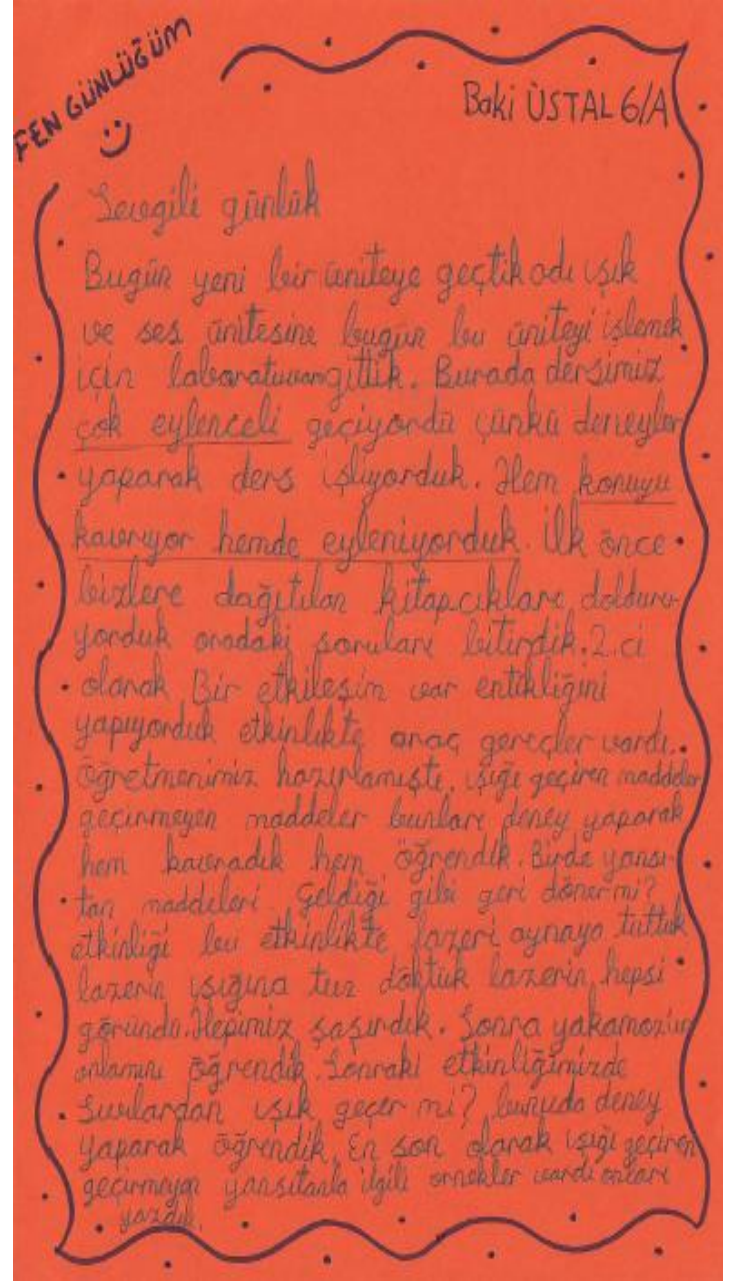 FEN GÜNLÜĞÜM
Baki ÜSTAL 6/A
Sevgili günlük
Bugün yeni bir üniteye geçtik adı ışık
ve ses ünitesine bugün bu üniteyi işlemek
için laboratuvara gittik. Burada dersimiz
çok eylenceli geçiyordu çünkü deneyler
yaparak ders işliyorduk. Hem konuyu
kavrıyor hemde eyleniyorduk. İlk önce
bizlere dağıtılan kitapcıkları dolduru-
yorduk oradaki soruları bitirdik. 2.ci
olarak Bir etkileşim var entikliğini
yapıyorduk etkinlikte araç gereçler vardı.
öğretmenimiz hazırlamıştı, ışığı geçiren maddeler
geçirmeyen maddeler bunları deney yaparak
hem kavradık hem öğrendik. Birde yansı-
tan maddeleri Geldiği gibi geri döner mi?
etkinliği bu etkinlikte lazeri aynaya tuttuk
lazerin ışığına tuz döktük lazerin hepsi
göründü. Hepimiz şaşırdık. Sonra yakamozun
anlamını öğrendik. Sonraki etkinliğimizde
Sıvılardan ışık geçer mi? bunuda deney
yaparak öğrendik. En son olarak ışığı geçiren
geçirmeyen yansıtanla ilgili örnekler vardı onları
yazdık.